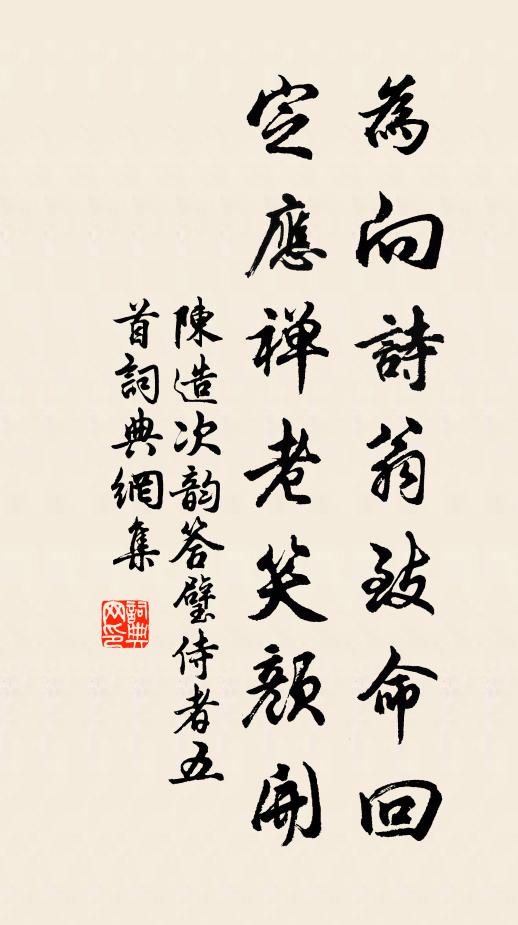 為向詩翁致命回
定應禅老笑顏開
陳造次韵答璧侍者五
首詞典網集
詞典网印